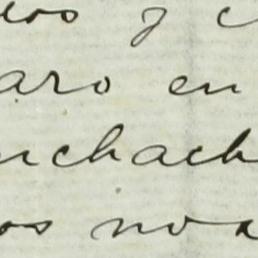 los y c
aro en
uchach
os no a